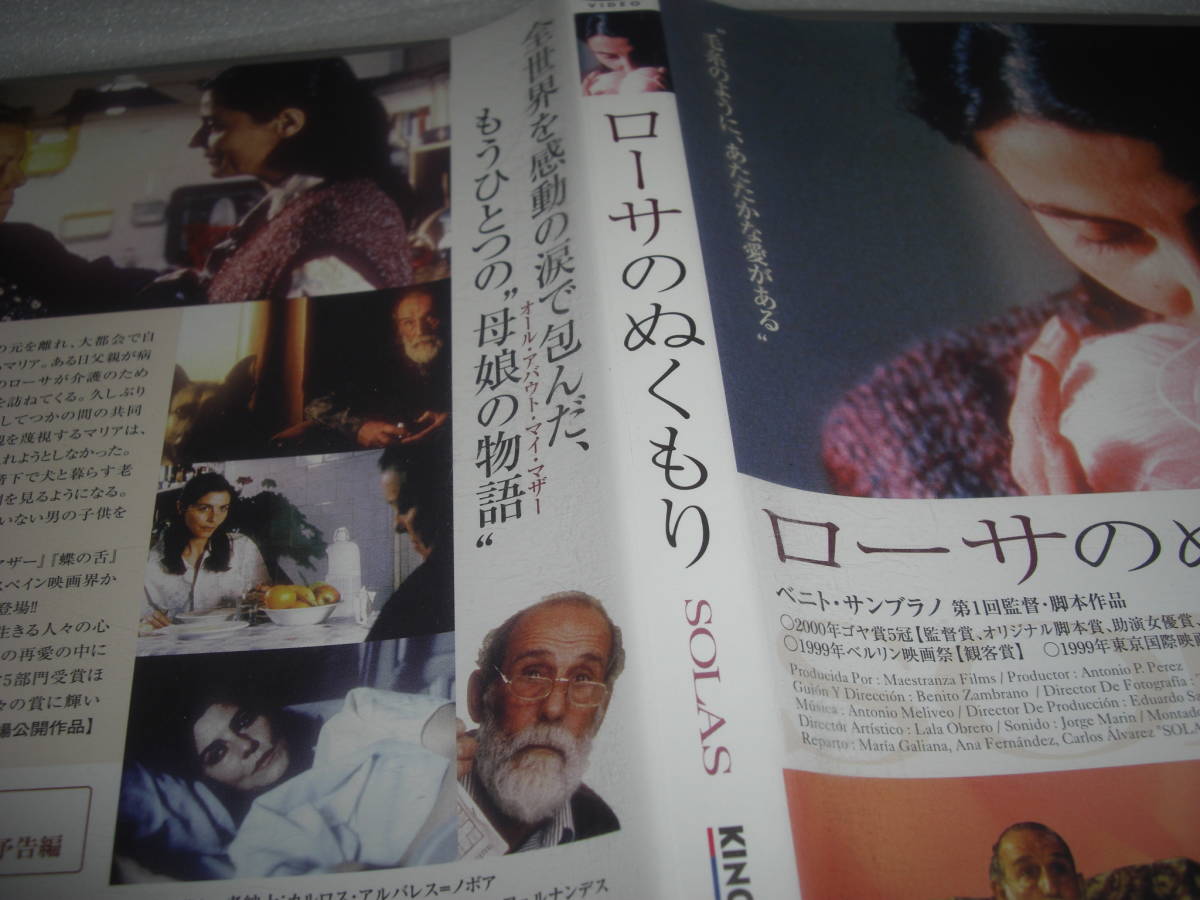 の元を離れ、大都会で自
マリア。ある日父親が病
のローサが介護のため
を訪ねてくる。久しぶり
してつかの間の共同
親を蔑視するマリアは、
れようとしなかった。
階下で犬と暮らす老
倒を見るようになる。
いない男の子供を
マザー』『蝶の舌』
スペイン映画界か
登場!!
生きる人々の心
の再愛の中に
5部門受賞ほ
々の賞に輝い
場公開作品】
予告編
カルロス・アルバレス=ノボア
全世界を感動の涙で包んだ、
もうひとつの"母娘の物語"
オール・アバウト・マイ・マザー
VIDEO
ローサのぬくもり
SOLAS
KING
"毛糸のように、あたたかな愛がある"
ローサのぬ
ベニト・サンブラノ 第1回監督・脚本作品
○2000年ゴヤ賞5冠【監督賞、オリジナル脚本賞、助演女優賞、
○1999年ベルリン映画祭【観客賞】 ○1999年東京国際映
Producida Por : Maestranza Films / Productor : Antonio P. Perez
Guión Y Dirección : Benito Zambrano / Director De Fotografía :
Música : Antonio Meliveo / Director De Producción : Eduardo S
Director Artístico : Lala Obrero / Sonido : Jorge Marin / Montad
Reparto : María Galiana, Ana Fernández, Carlos Álvarez "SOLA